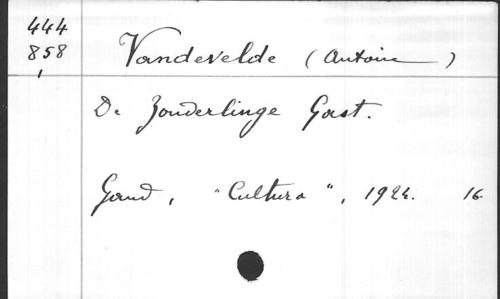 444
858 Vandevelde (Antoine)
1
De Zonderlinge Gast.
Gand, "Cultura", 1924. 16.